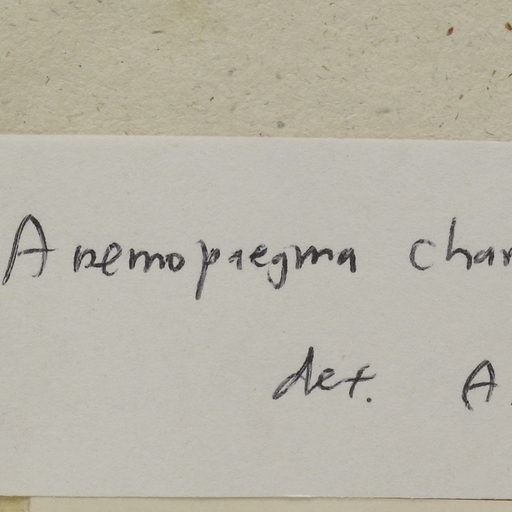 Anemopaegma cham
det. A.